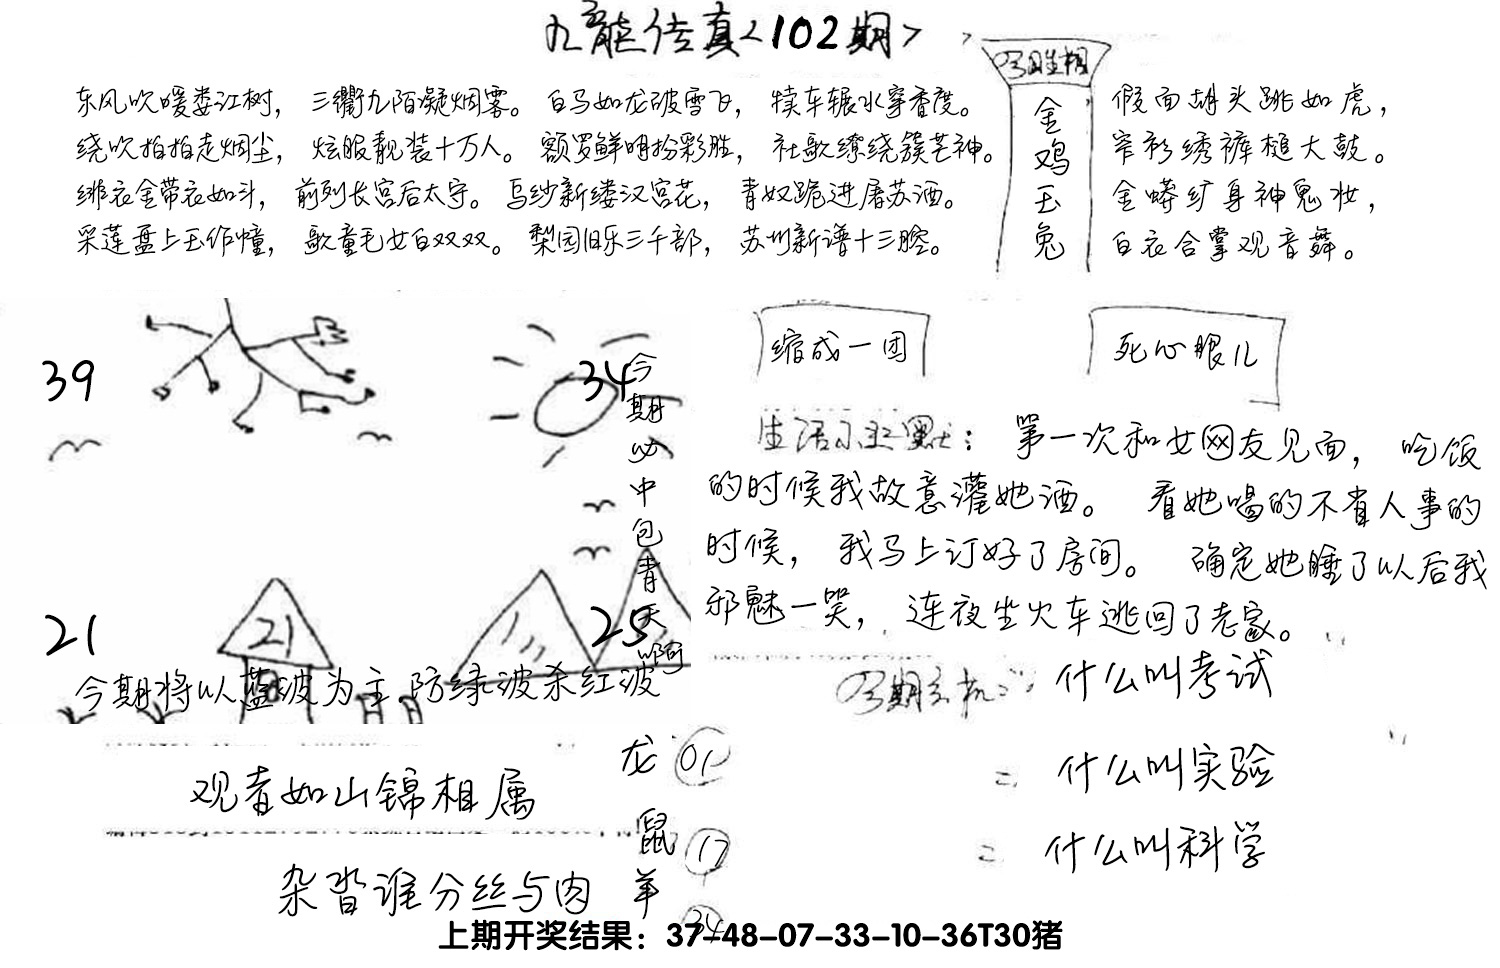 九龙传真<102期>
今期生相
金鸡玉兔
东风吹暖娄江树，三衢九陌凝烟雾。白马如龙破雪飞，犊车辗水穿香度。
绕吹拍拍走烟尘，炫服靓装十万人。额罗鲜明扮彩胜，社歌缭绕簇芒神。
绯衣金带衣如斗，前列长宫后太守。乌纱新缕汉宫花，青奴跪进屠苏酒。
采莲盘上玉作幢，歌童毛女白双双。梨园旧乐三千部，苏州新谱十三腔。
假面胡头跳如虎，
窄衫绣裤槌大鼓。
金蟒纩身神鬼妆，
白衣合掌观音舞。
39
34
今期必中包青天啊
21
21
25
今期将以蓝波为主.防绿波杀红波
缩成一团
死心眼儿
生活小幽默：第一次和女网友见面，吃饭
的时候我故意灌她酒。看她喝的不省人事的
时候，我马上订好了房间。确定她睡了以后我
邪魅一笑，连夜坐火车逃回了老家。
今期玄机一：什么叫考试
二：什么叫实验
二：什么叫科学
观者如山锦相属
杂沓谁分丝与肉
龙 01
鼠 17
羊 34
上期开奖结果：37-48-07-33-10-36T30猪